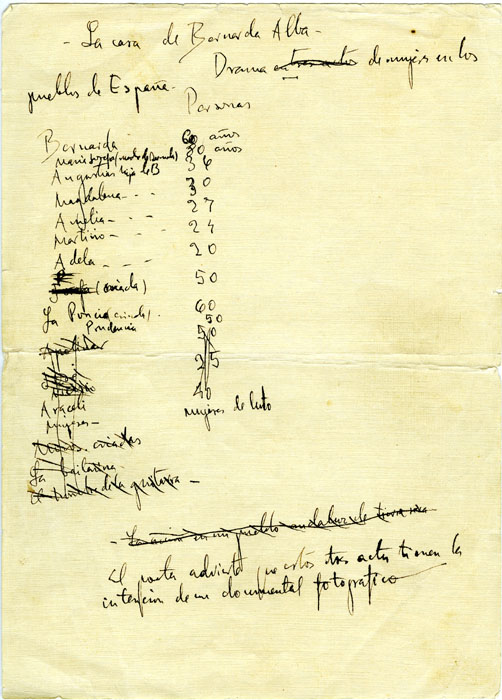 - La casa de Bernarda Alba -
Drama en tres actos de mujeres en los
pueblos de España -
Personas
Bernarda 60 años
María Josefa (madre de Bernarda) 80 años
Angustias hija de B 39
Magdalena - - - 30
Amelia - - - 27
Martirio - - - 24
Adela - - - 20
(criada) 50
La Poncia (criada) 60
Prudencia 50
50
25
Araceli 40
Mujeres - mujeres de luto
criadas
La bailarina -
El hombre de la guitarra -
- La escena en un pueblo andaluz de tierra
El poeta advierte que estos tres actos tienen la
intención de un documental fotográfico